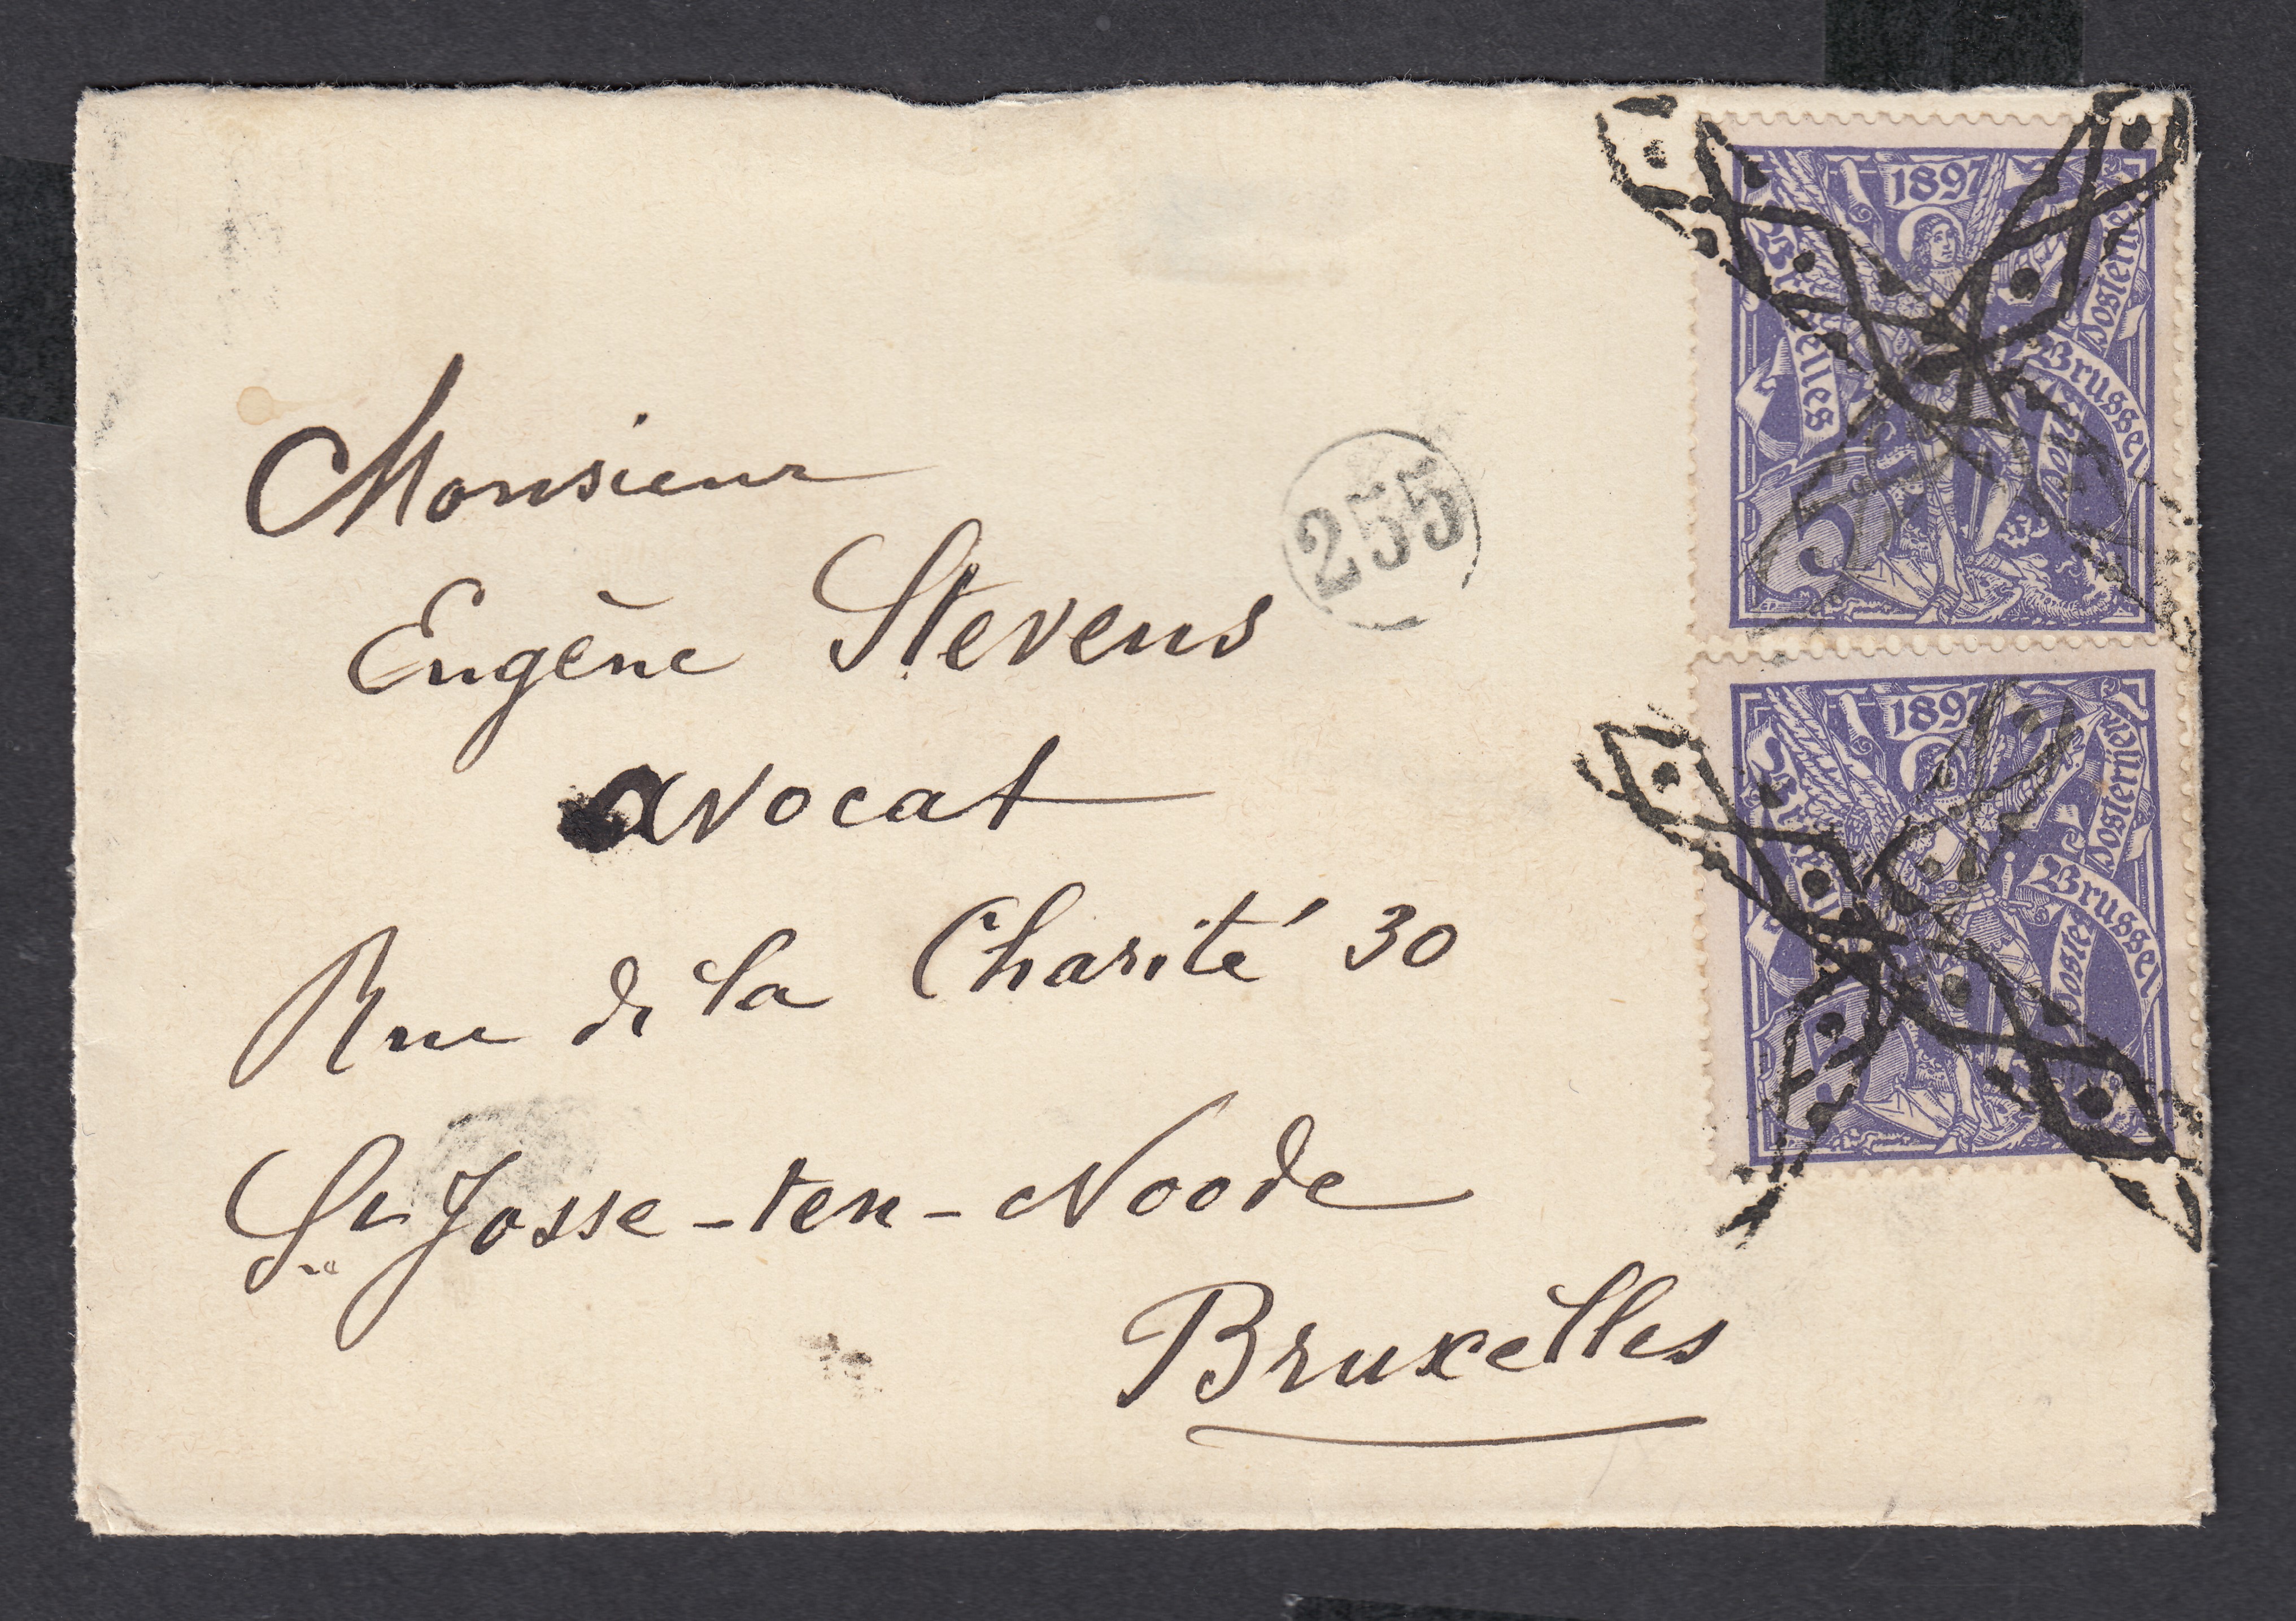 Monsieur
Eugène Stevens
avocat
Rue de la Charité 30
St Josse-ten-Noode
Bruxelles
255
1897
Bruxelles
Brussel
Posterijen
Postes
5
1897
Brussel
Posterijen
Postes
5